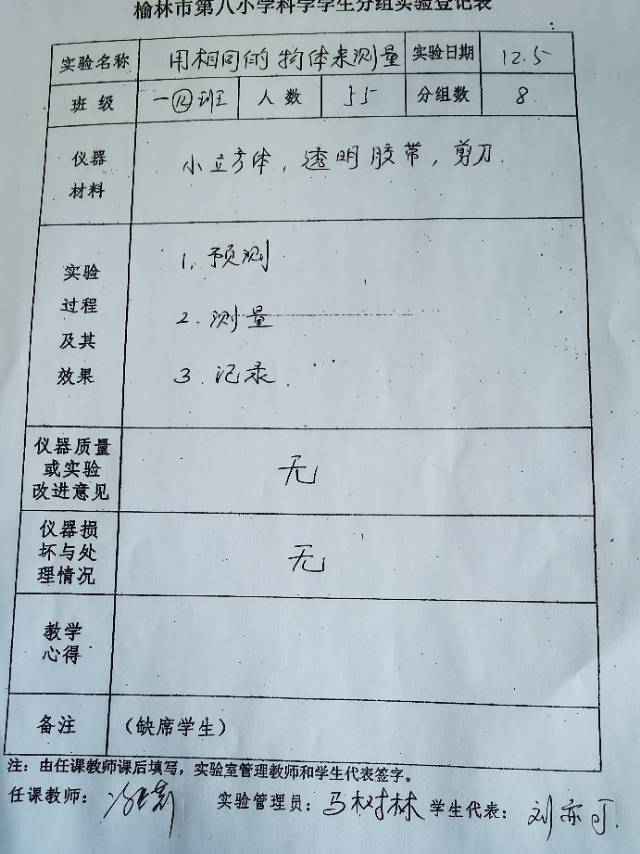 榆林市第八小学科学学生分组实验登记表
实验名称 用相同的物体来测量 实验日期 12.5
班级 一⑫班 人数 55 分组数 8
仪器材料 小立方体，透明胶带，剪刀.
实验过程及其效果
1.预测
2.测量
3.记录
仪器质量或实验改进意见 无
仪器损坏与处理情况 无
教学心得
备注 （缺席学生）
注：由任课教师课后填写，实验室管理教师和学生代表签字。
任课教师： 实验管理员：马树林 学生代表：刘亦可